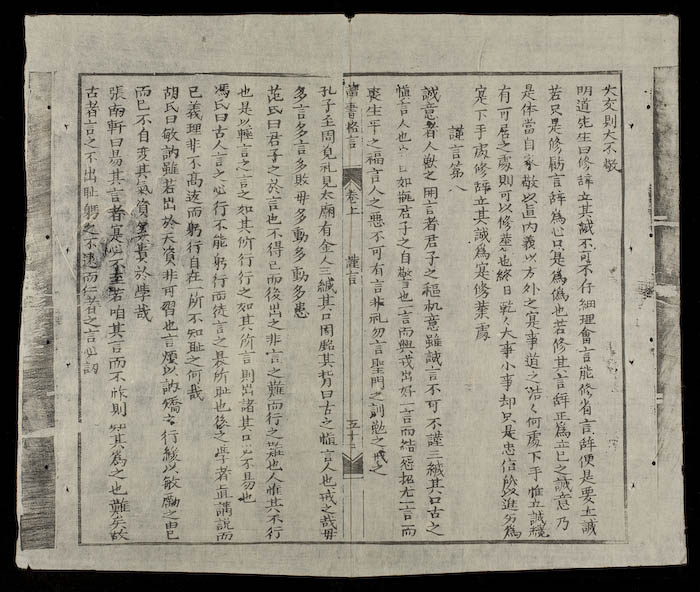 失交則大不敬
明道先生曰修辭立其誠不可不仔細理會言能修省言辭便是要立誠
若只是修飭言辭為心只是為偽也若修其言辭正為立己之誠意乃
是體當自家敬以直內義以方外之寔事道之浩〻何處下手惟立誠纔
有可居之處則可以修業也終日乾〻大事小事却只是忠信所以進為
寔下手處修辭立其誠為寔修業處
謹言第八
誠意者人心之 開言者君子之樞机意雖誠言不可不謹三緘其口古之
慎言人也 曰如 君子之自警也一言而興戎出好一言而結怨招尤一言而
喪生平之福言人之惡不可有言非礼勿言聖門之訓勉之戒之
蕾書格言 卷上 謹言 五十
孔子至周見礼見太廟有金人三緘其口因銘其背曰古之慎言人也戒之哉毋
多言多言多敗毋多動多動多患
范氏曰君子之於言也不得已而後出之非言之難而行之難也人惟其不行
也是以輕言之言之如其所行行之如其所言則出諸其口必不易也
馮氏曰古人言之必行不能躬行而徒言之是所恥也後之學者直講說而
已義理非不高遠而躬行自在一所不知恥之何哉
胡氏曰敏訥雖若出於天資非可習也言煩以訥矯之行緩以敏勵之由己
而已不自变其氣質奚貴於學哉
張南軒曰易其言者寔必不至若咱其言而不怍則知其為之也難矣故
古者言之不出恥躬之不逮而仁者之言必訒